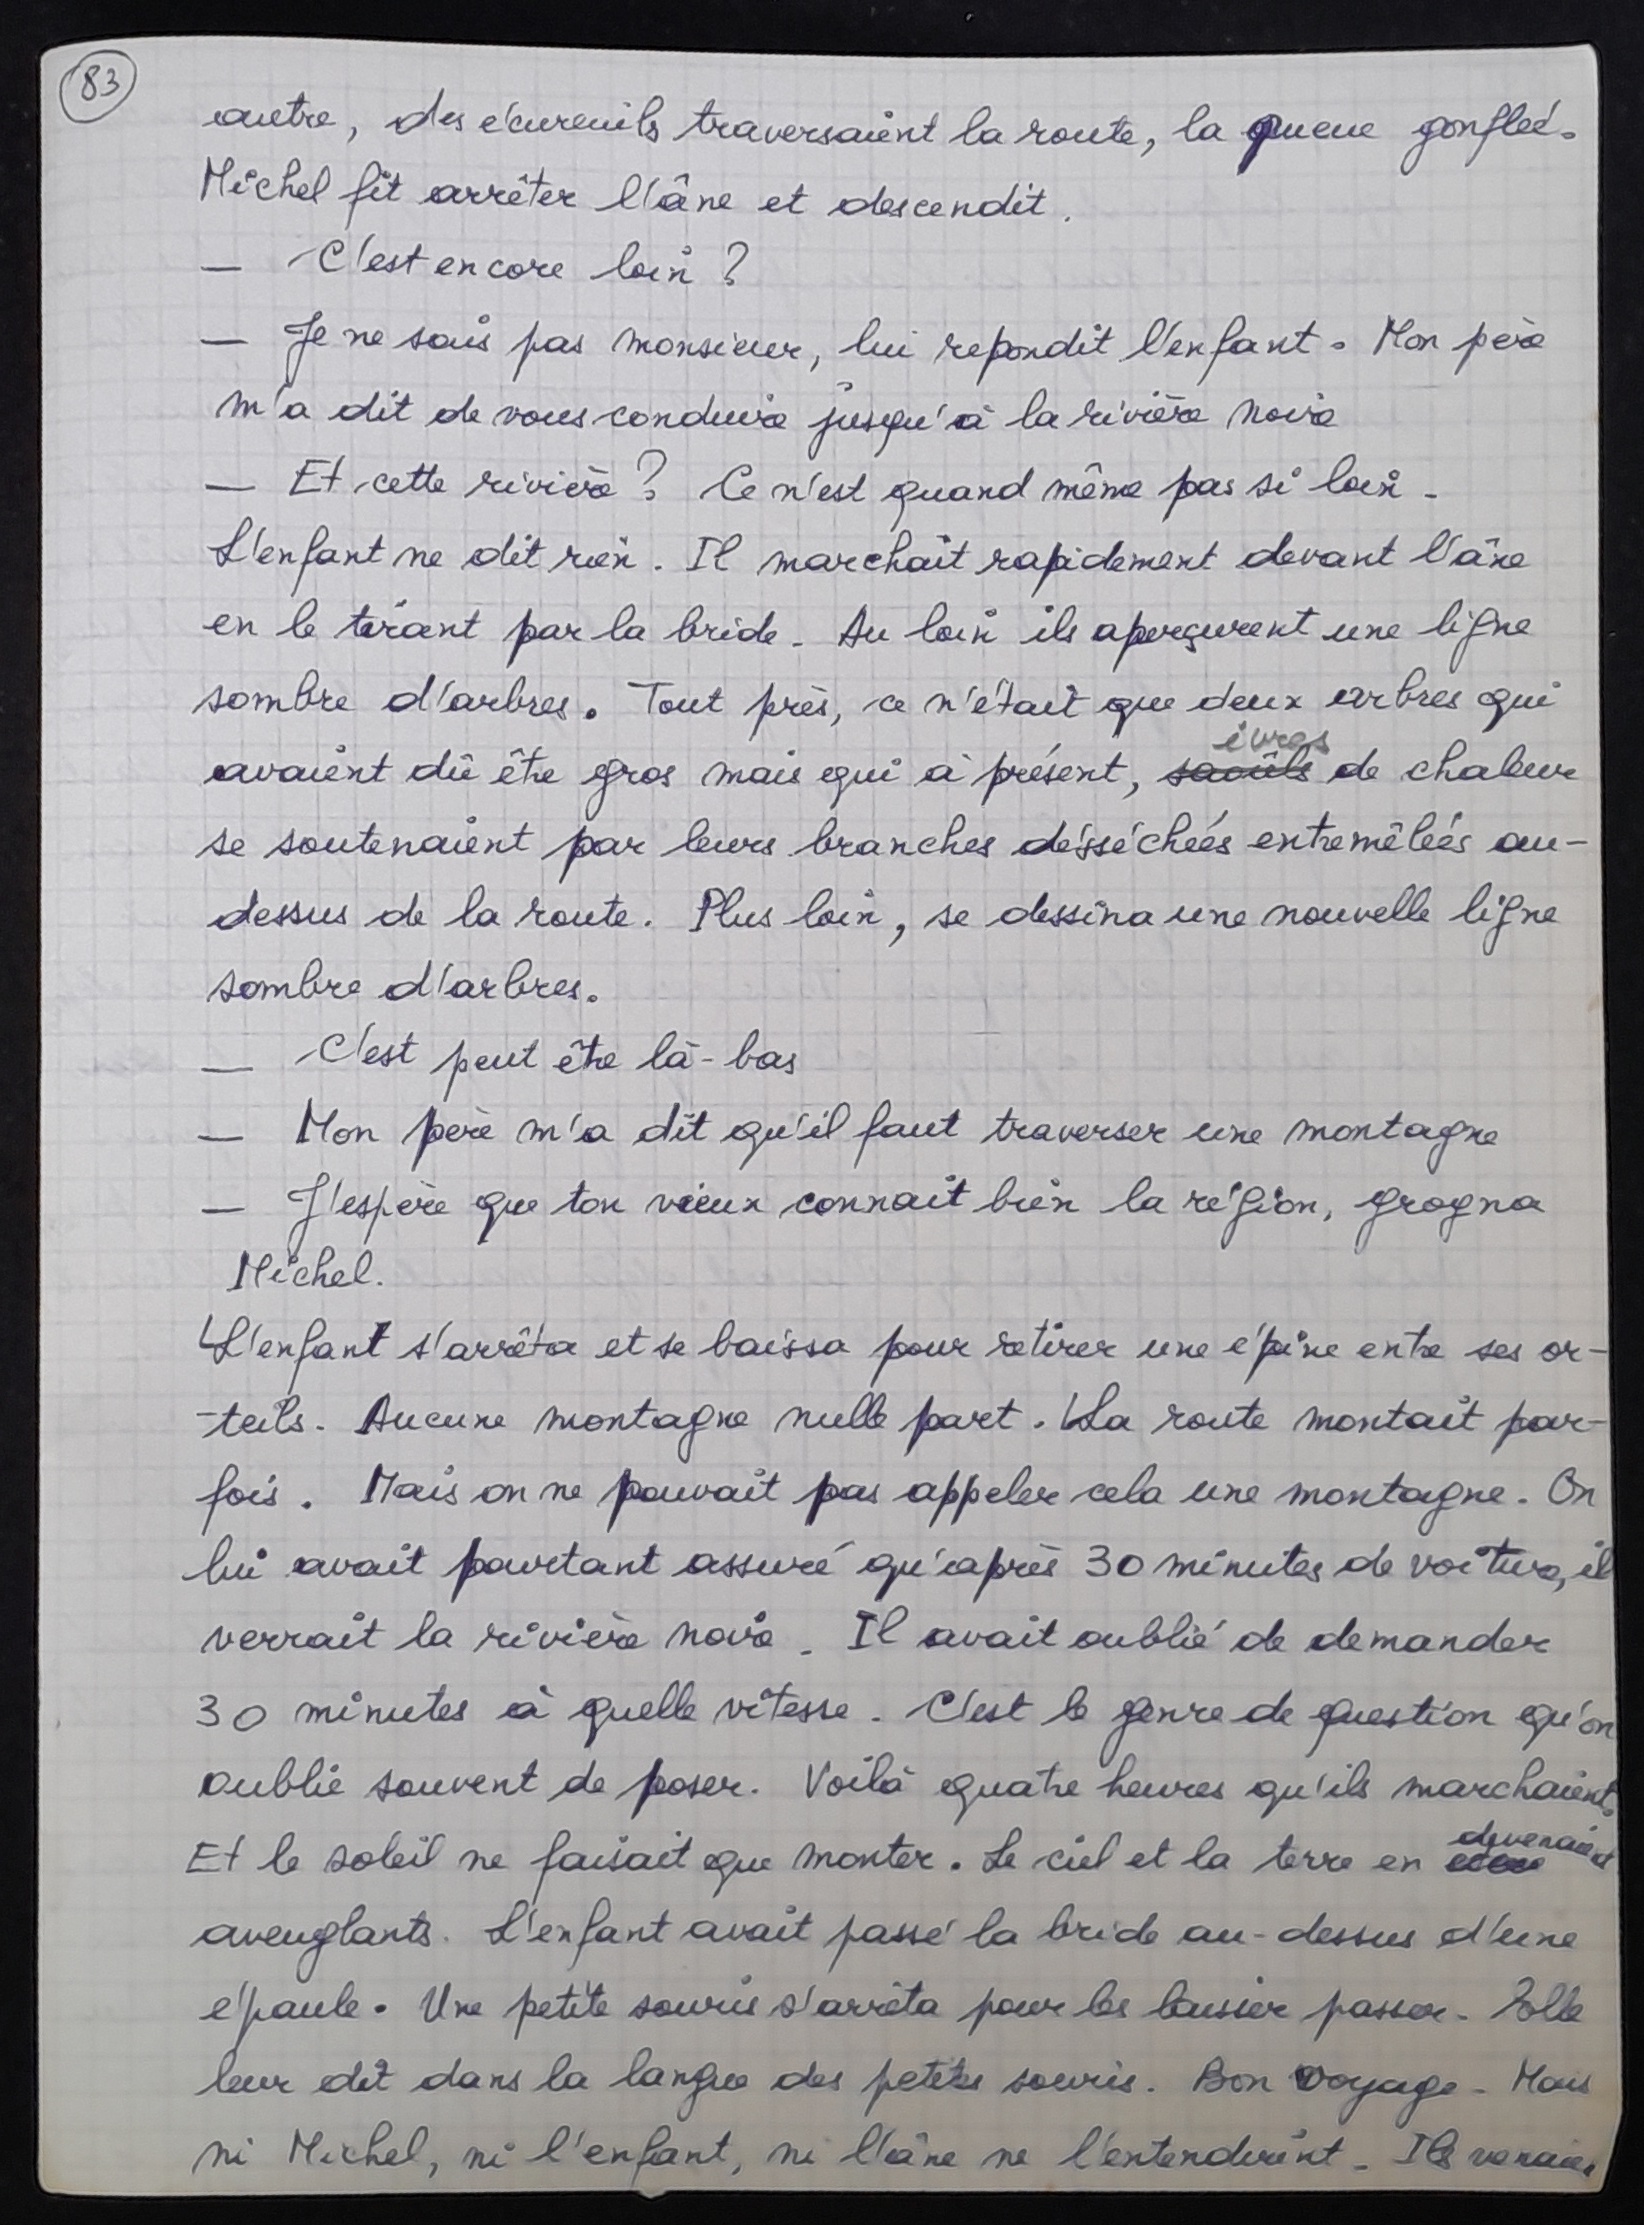 83
autre, des écureuils traversaient la route, la queue gonflée.
Michel fit arrêter l'âne et descendit.
— C'est encore loin ?
— Je ne sais pas monsieur, lui repondit l'enfant. Mon père
m'a dit de vous conduire jusqu'à la rivière noire
— Et cette rivière ? Ce n'est quand même pas si loin.
L'enfant ne dit rien. Il marchait rapidement devant l'âne
en le tirant par la bride. Au loin ils aperçurent une ligne
sombre d'arbres. Tout près, ce n'était que deux arbres qui
ivres
avaient dû être gros mais qui à présent, saoûls de chaleur
se soutenaient par leurs branches désséchées entremêlées au-
dessus de la route. Plus loin, se dessina une nouvelle ligne
sombre d'arbres.
— C'est peut être là-bas
— Mon père m'a dit qu'il faut traverser une montagne
— J'espère que ton vieux connait bien la région, grogna
Michel.
L'enfant s'arrêta et se baissa pour retirer une épine entre ses or-
-teils. Aucune montagne nulle part. La route montait par-
fois. Mais on ne pouvait pas appeler cela une montagne. On
lui avait pourtant assuré qu'après 30 minutes de voiture, il
verrait la rivière noire. Il avait oublié de demander
30 minutes à quelle vitesse. C'est le genre de question qu'on
oublie souvent de poser. Voilà quatre heures qu'ils marchaient.
devenaient
Et le soleil ne faisait que monter. Le ciel et la terre en
aveuglants. L'enfant avait passé la bride au-dessus d'une
épaule. Une petite souris s'arrêta pour les laisser passer. Elle
leur dit dans la langue des petites souris. Bon voyage. Mais
ni Michel, ni l'enfant, ni l'âne ne l'entendirent. Ils